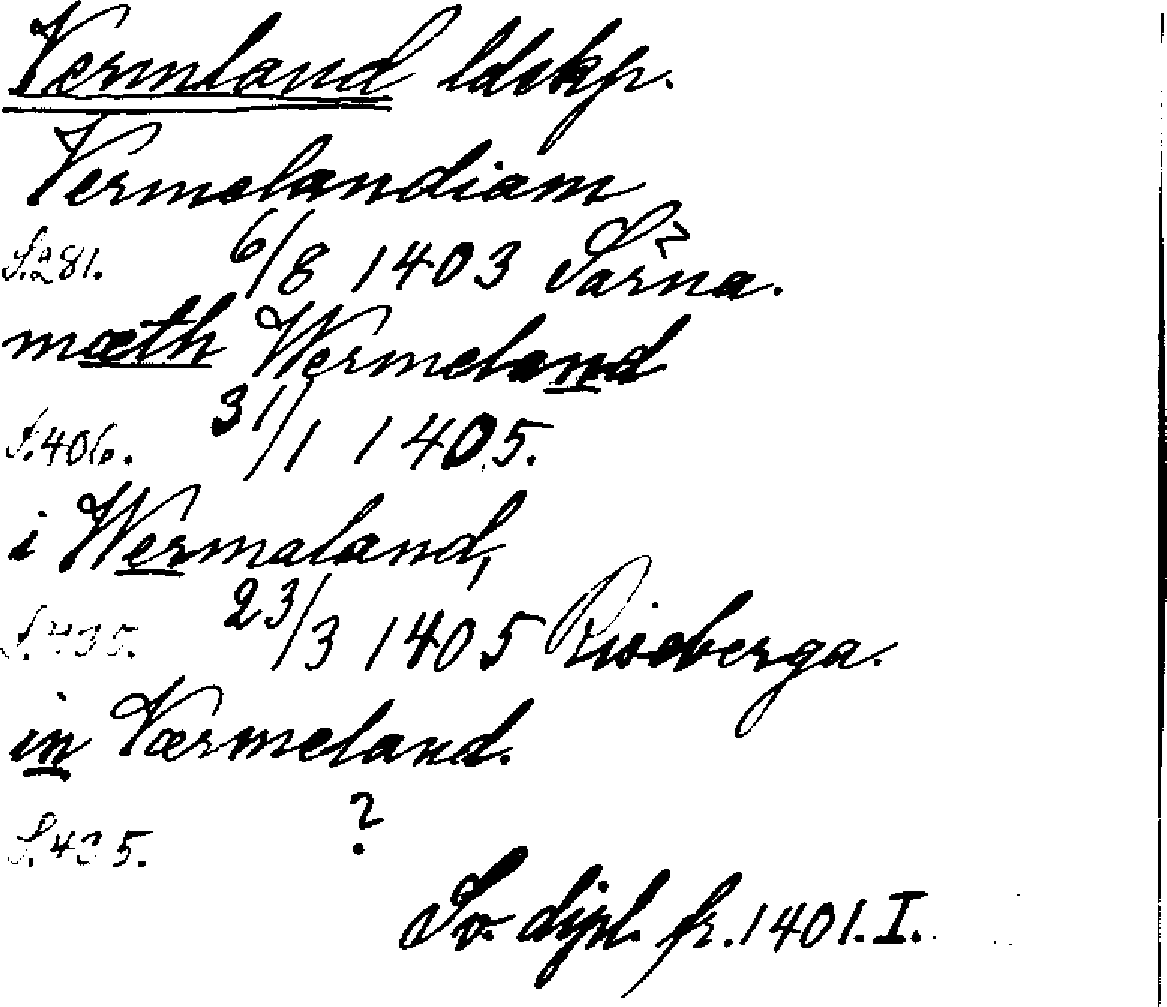 Vermland ldskp.
Vermelandiam
S.281. 6/8 1403 Särna.
mæth Wermeland
S.406. 31/1 1405.
i Wermaland,
S.435. 23/3 1405 Riseberga.
in Værmeland.
S.435. ?
Sv. dipl. fr. 1401. I.